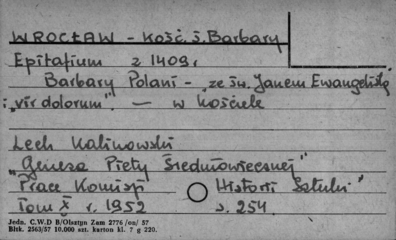 WROCŁAW - Kość. ś. Barbary
Epitafium z 1409 r.
Barbary Polani - ze św. Janem Ewangelistą
i „vir dolorum". — w kościele
Lech Kalinowski
„Geneza Piety Średniowiecznej"
Prace Komisji Historii Sztuki"
tom X r. 1952 s. 254.
Jedn. C.W.D B/Olsztyn Zam 2776 /on/ 57
Bltk. 2563/57 10.000 szt. karton kl. 7 g 220.